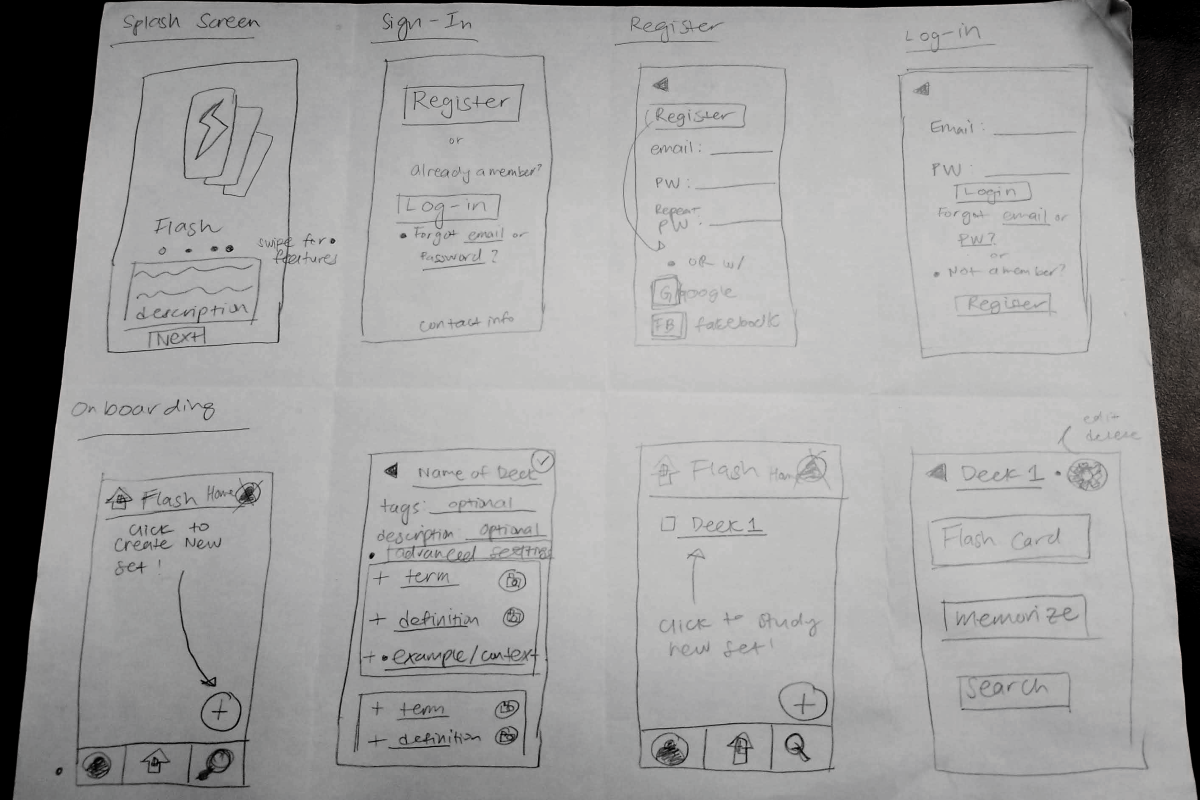 Splash Screen
Flash
swipe for
features
description
Next
Sign-In
Register
or
already a member?
Log-in
• Forgot email or
Password?
contact info
Register
Register
email:
PW:
Repeat
PW:
• OR w/
G google
FB fakebook
Log-in
Email:
PW:
Login
Forgot email or
PW?
or
• Not a member?
Register
Onboarding
Flash Home
Click to
Create New
Set!
+
Name of Deck
tags: optional
description optional
• advanced settings
+ term
+ definition
+ • example/context
+ term
+ definition
Flash Home
Deck 1
Click to study
new set!
+
edit
delete
Deck 1 •
Flash Card
Memorize
Search